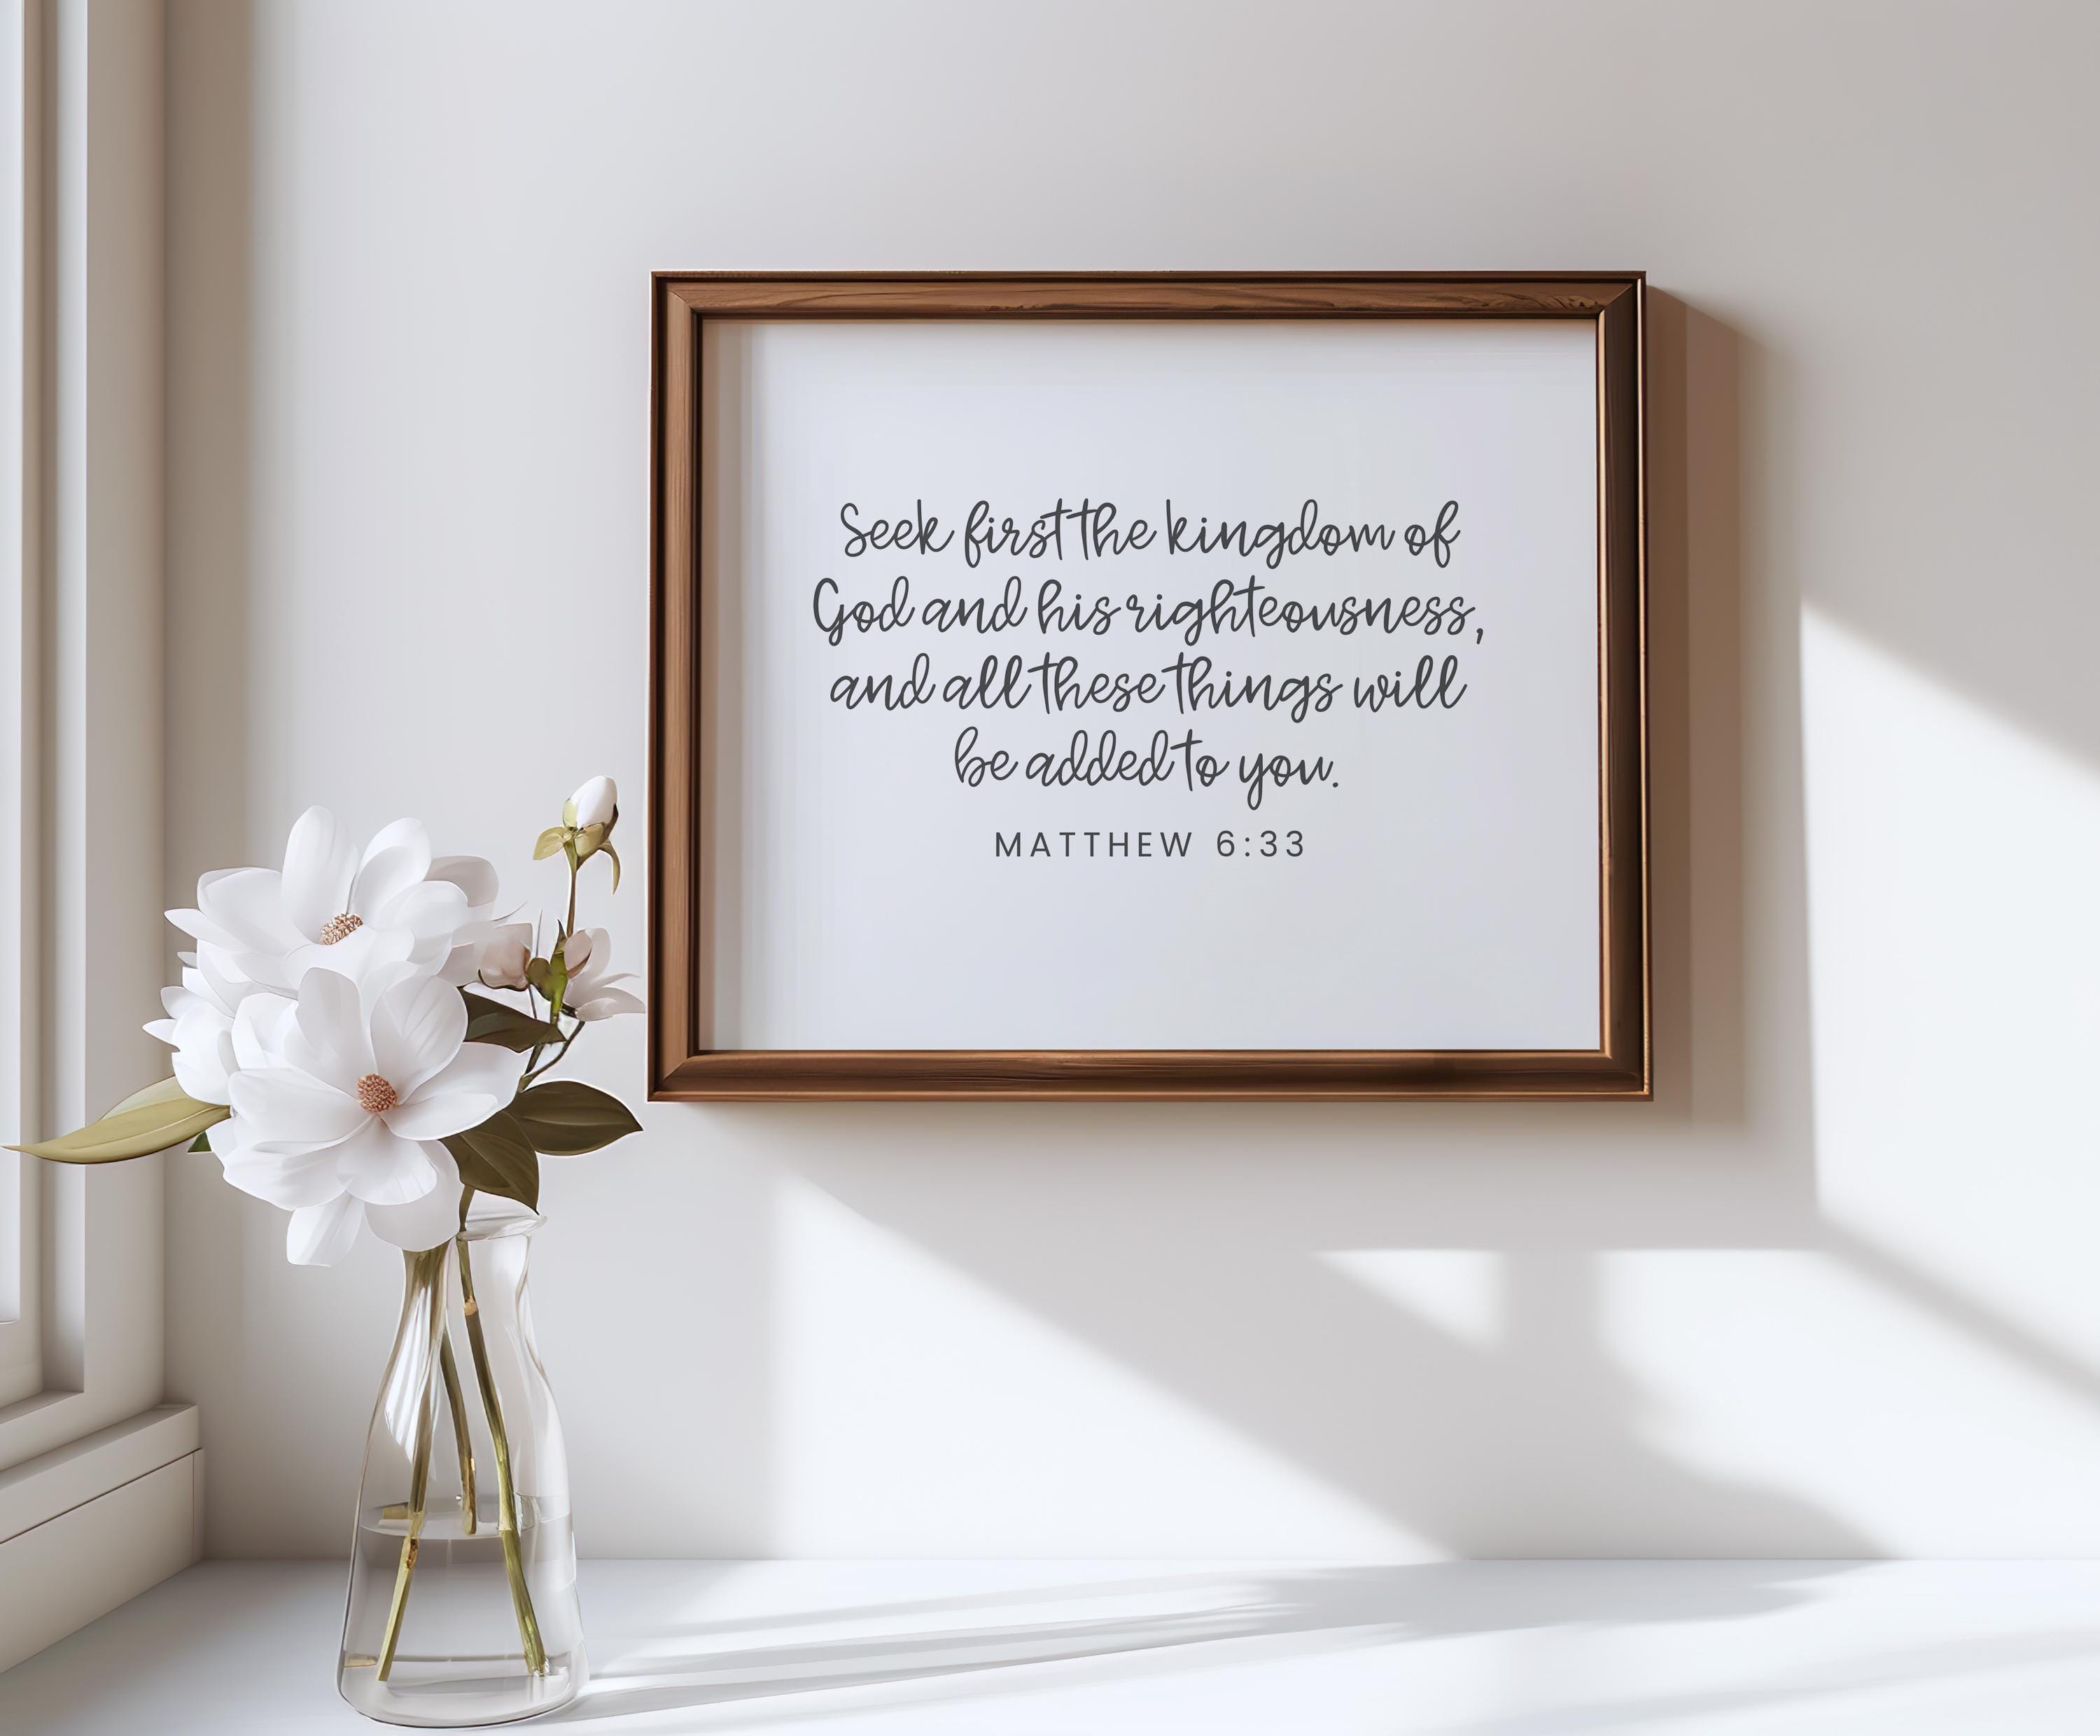 Seek first the kingdom of
God and his righteousness,
and all these things will
be added to you.
MATTHEW 6:33